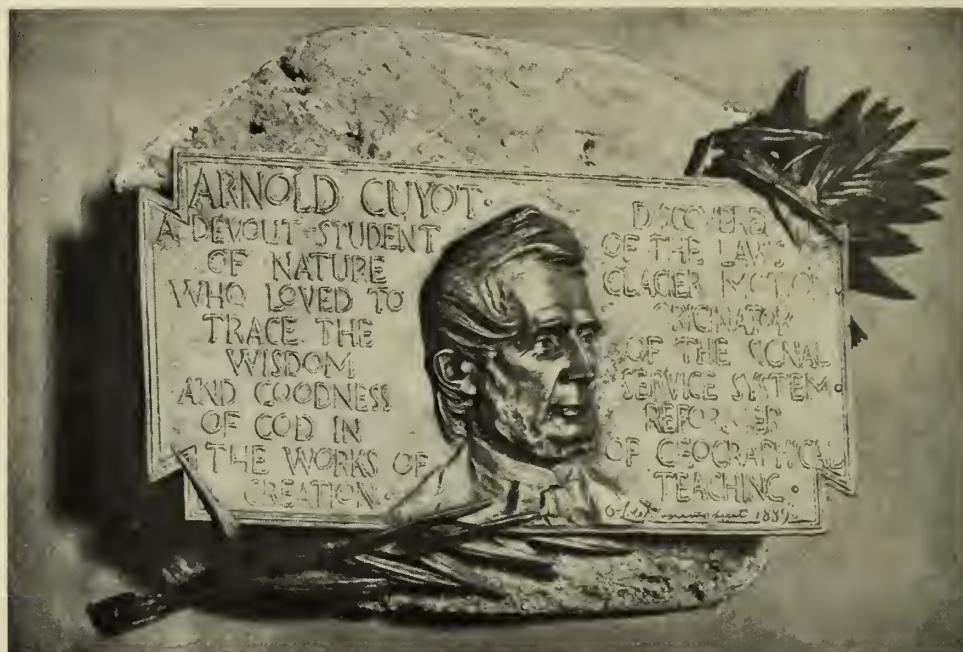 ARNOLD GUYOT·
A DEVOUT STUDENT
OF NATURE
WHO LOVED TO
TRACE THE
WISDOM
AND GOODNESS
OF GOD IN
THE WORKS OF
CREATION·
DISCOVERER
OF THE LAWS
GLACIER MOTION
ORIGINATOR
OF THE SIGNAL
SERVICE SYSTEM·
REFORMER
OF GEOGRAPHICAL
TEACHING·
1889